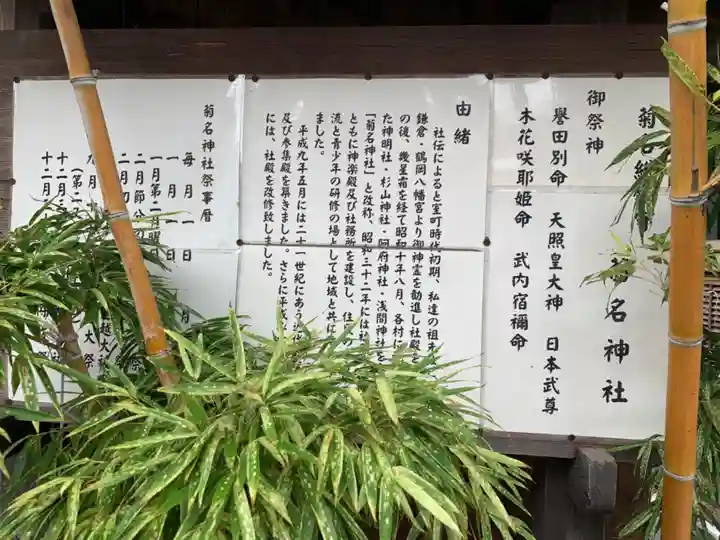 菊名
名神社
御祭神
誉田別命　天照皇大神　日本武尊
木花咲耶姫命　武内宿禰命
由緒
社伝によると室町時代初期、私達の祖
鎌倉・鶴岡八幡宮より御神霊を勧進し社殿を
の後、幾星霜を経て昭和十年八月、各村に
た神明社・杉山神社・阿府神社・浅間神社を
「菊名神社」と改称、昭和三十二年には社
ともに神楽殿及び社務所を建設し、住
流と青少年の研修の場として地域と共に
ました。
平成九年五月には二十一世紀にあう
及び参集殿を築きました。さらに平成
には、社殿を改修致しました。
菊名神社祭事暦
毎月一日
一月一日
一月第二月曜
二月節分
二月
九月
十二月
十二月
月
越大
大祭
祭